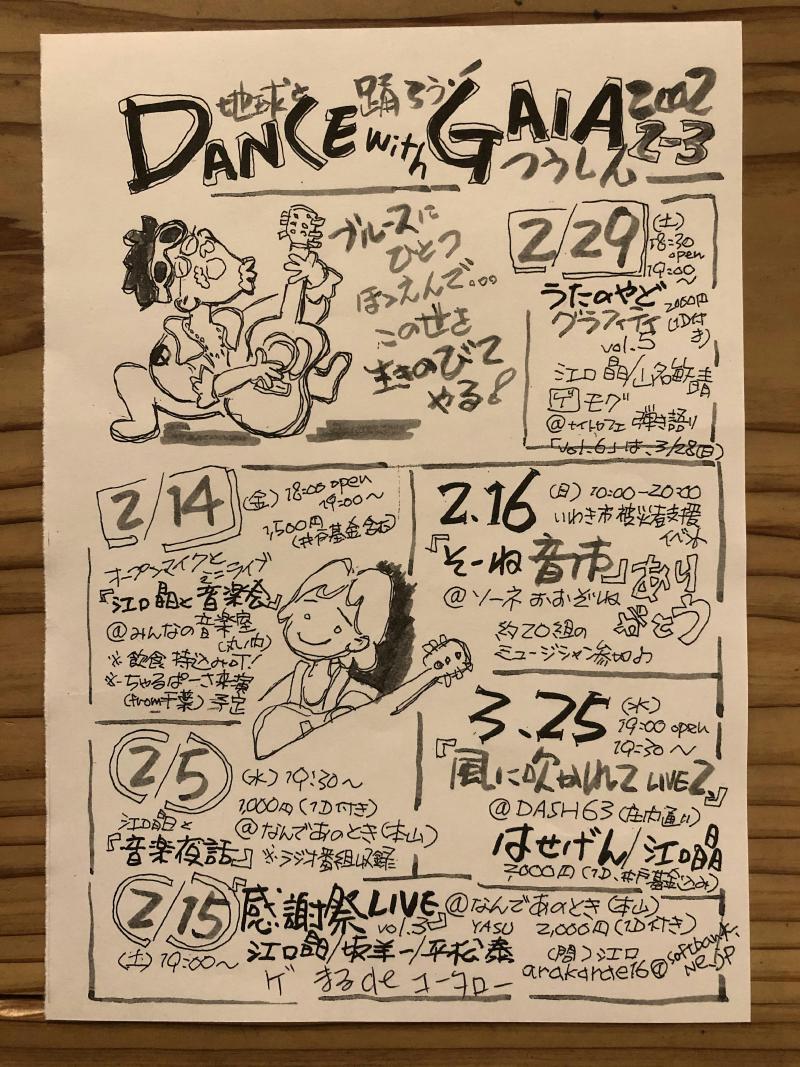 地球と踊ろう!
DANCE with GAIA
つうしん
2-3
ブルースに
ひとつ
ほほえんで...
この世を
生きのびて
やる!
2/29
(土)
18:30
open
19:00
〜
2000円
(1D付
き)
うたのやど
グラフィティ
vol.5
江口晶/山名敏晴
ゲ モグ
@ナイトカフェ 弾き語り
「vol.6」は、3/28(日)
2/14
(金) 18:00 open
19:00〜
1,500円
(井戸基金含む)
オープンマイクと
ミニライブ
『江口晶と音楽会』
@みんなの音楽室
(丸の内)
※飲食持込み可!
※ちゃるぱーさ来演
(from千葉)予定
2.16
(日) 10:00-20:00
いわき市被災者支援
イベント
『そーね音市』
ありがとう
@ソーネおおぞね
約20組の
ミュージシャン参加
3.25
(水)
19:00 open
19:30〜
『風に吹かれて LIVE 2』
@DASH63(庄内通り)
はせげん/江口晶
2,000円(1D、井戸基金込み)
2/5
(水) 19:30〜
1,000円(1D付き)
@なんであのとき(本山)
江口晶と
『音楽夜話』
※ラジオ番組収録
2/15
(土) 19:00〜
『感謝祭LIVE
vol.3』
@なんであのとき(本山)
YASU 2,000円(1D付き)
江口晶/坂羊一/平松泰
(問)江口
arakante16@softbank.ne.jp
ゲ まるde コータロー